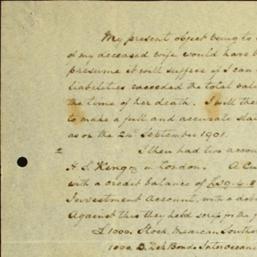 My present object being to
of my deceased wife would have b
presume it will suffice if I can
liabilities exceeded the total bala
the time of her death. I will the
to make a full and accurate sta
as on the 2nd September 1901.
I then had two accou
H. S. King in London. A Cu
with a credit balance of £39.4.8
Investment Account, with a deb
Against this they held scrip for the f
£1000 Stock Mexican Southe
1000 Bonds Interocean